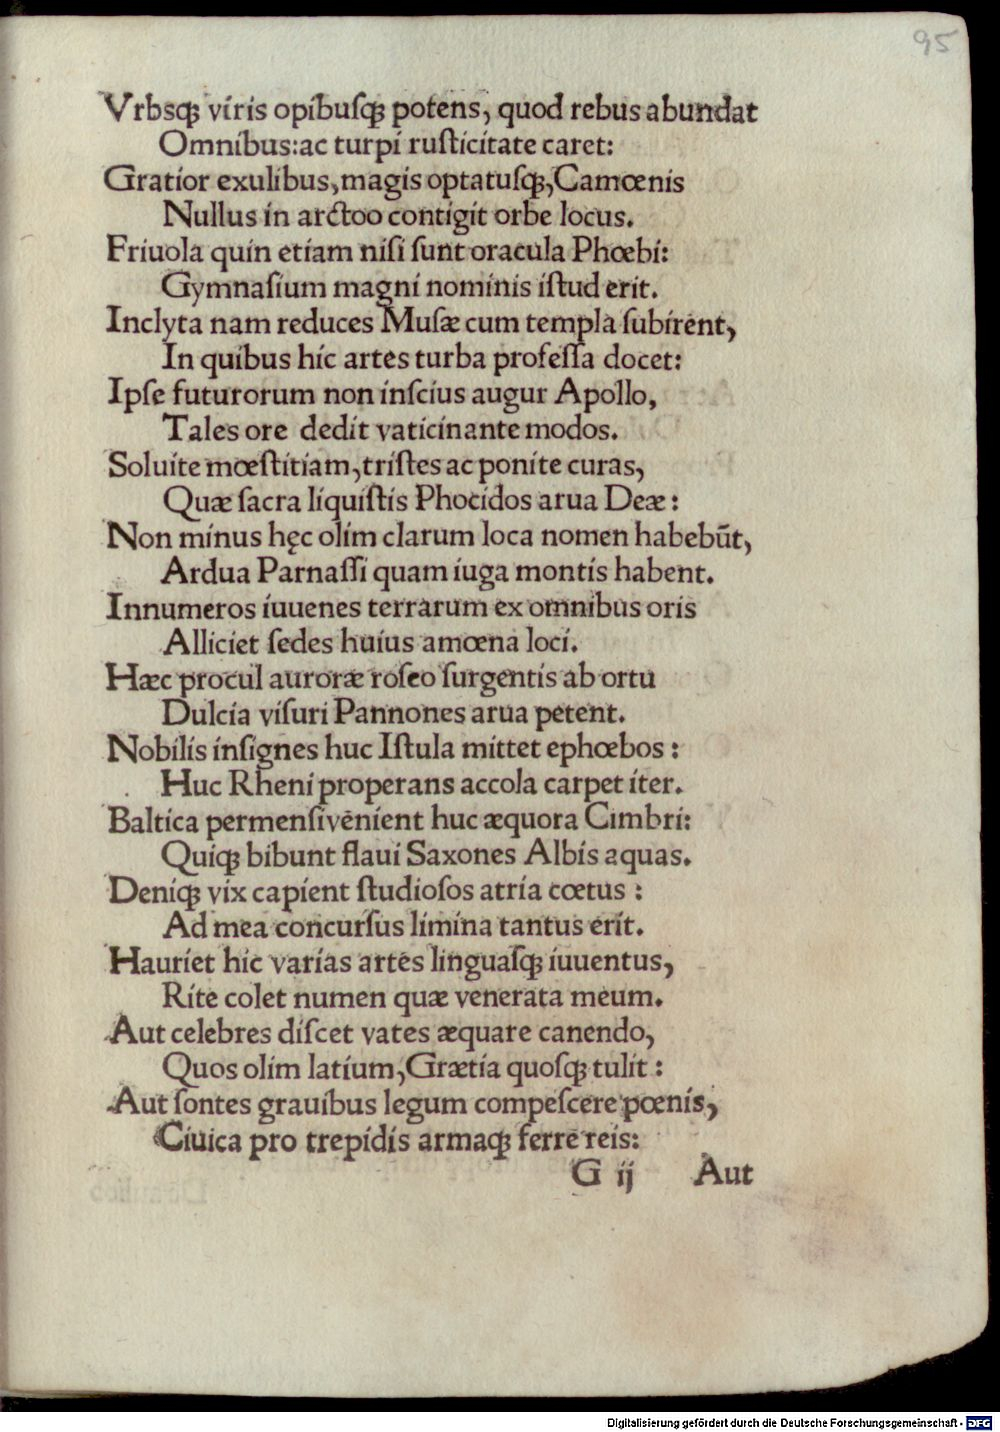 95
Vrbsqꝫ viris opibuſqꝫ potens, quod rebus abundat
Omnibus: ac turpi ruſticitate caret:
Gratior exulibus, magis optatuſqꝫ, Camœnis
Nullus in arctoo contigit orbe locus.
Friuola quin etiam niſi ſunt oracula Phœbi:
Gymnaſium magni nominis iſtud erit.
Inclyta nam reduces Muſæ cum templa ſubirent,
In quibus hic artes turba profeſſa docet:
Ipſe futurorum non inſcius augur Apollo,
Tales ore dedit vaticinante modos.
Soluite mœſtitiam, triſtes ac ponite curas,
Quæ ſacra liquiſtis Phocidos arua Deæ:
Non minus hęc olim clarum loca nomen habebūt,
Ardua Parnaſſi quam iuga montis habent.
Innumeros iuuenes terrarum ex omnibus oris
Alliciet ſedes huius amœna loci.
Hæc procul auroræ roſeo ſurgentis ab ortu
Dulcia viſuri Pannones arua petent.
Nobilis inſignes huc Iſtula mittet ephœbos:
Huc Rheni properans accola carpet iter.
Baltica permenſi vēnient huc æquora Cimbri:
Quiqꝫ bibunt flaui Saxones Albis aquas.
Deniqꝫ vix capient ſtudioſos atria cœtus:
Ad mea concurſus limina tantus erit.
Hauriet hic varias artes linguaſqꝫ iuuentus,
Rite colet numen quæ venerata meum.
Aut celebres diſcet vates æquare canendo,
Quos olim latium, Grætia quoſqꝫ tulit:
Aut ſontes grauibus legum compeſcere pœnis,
Ciuica pro trepidis armaqꝫ ferre reis:
G ij Aut
Digitalisierung gefördert durch die Deutsche Forschungsgemeinschaft - DFG